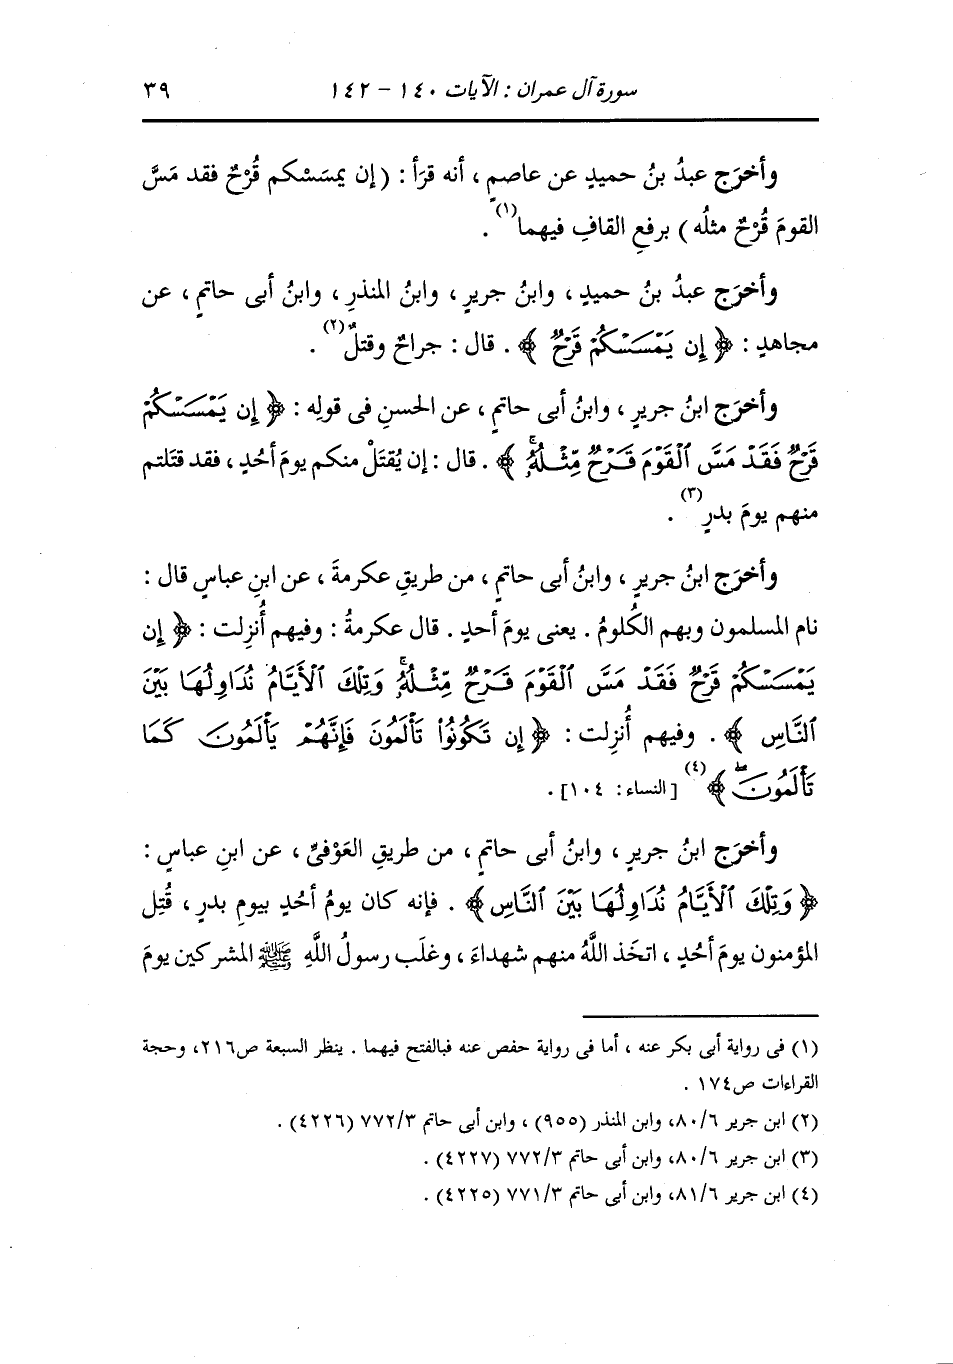 سورة آل عمران : الآيات ١٤٠ - ١٤٢ ٣٩
وأخرَج عبدُ بنُ حميدٍ عن عاصمٍ ، أنه قرَأ : ( إن يمسَسْكم قُرْحٌ فقد مَسَّ
القومَ قُرْحٌ مثلُه ) برفعِ القافِ فيهما(١) .
وأخرَج عبدُ بنُ حميدٍ ، وابنُ جريرٍ ، وابنُ المنذرِ ، وابنُ أبى حاتمٍ ، عن
مجاهدٍ : ﴿ إِن يَمْسَسْكُمْ قَرْحٌ ﴾ . قال : جراحٌ وقتلٌ(٢) .
وأخرَج ابنُ جريرٍ ، وابنُ أبى حاتمٍ ، عن الحسنِ فى قولِه : ﴿ إِن يَمْسَسْكُمْ
قَرْحٌ فَقَدْ مَسَّ ٱلْقَوْمَ قَرْحٌ مِّثْلُهُۥۚ ﴾ . قال : إن يُقتَلْ منكم يومَ أُحُدٍ ، فقد قتَلتم
منهم يومَ بدرٍ(٣) .
وأخرَج ابنُ جريرٍ ، وابنُ أبى حاتمٍ ، من طريقِ عكرمةَ ، عن ابنِ عباسٍ قال :
نام المسلمون وبهم الكُلومُ . يعنى يومَ أحدٍ . قال عكرمةُ : وفيهم أُنزِلت : ﴿ إِن
يَمْسَسْكُمْ قَرْحٌ فَقَدْ مَسَّ ٱلْقَوْمَ قَرْحٌ مِّثْلُهُۥۚ وَتِلْكَ ٱلْأَيَّامُ نُدَاوِلُهَا بَيْنَ
ٱلنَّاسِ ﴾ . وفيهم أُنزِلت : ﴿ إِن تَكُونُوا۟ تَأْلَمُونَ فَإِنَّهُمْ يَأْلَمُونَ كَمَا
تَأْلَمُونَۖ ﴾(٤) [ النساء : ١٠٤] .
وأخرَج ابنُ جريرٍ ، وابنُ أبى حاتمٍ ، من طريقِ العَوْفىِّ ، عن ابنِ عباسٍ :
﴿ وَتِلْكَ ٱلْأَيَّامُ نُدَاوِلُهَا بَيْنَ ٱلنَّاسِ ﴾ . فإنه كان يومُ أُحُدٍ بيومِ بدرٍ ، قُتِل
المؤمنون يومَ أُحُدٍ ، اتخَذ اللَّهُ منهم شهداءَ ، وغلَب رسولُ اللَّهِ ﷺ المشركين يومَ
(١) فى رواية أبى بكر عنه ، أما فى رواية حفص عنه فبالفتح فيهما . ينظر السبعة ص٢١٦، وحجة
القراءات ص١٧٤ .
(٢) ابن جرير ٨٠/٦، وابن المنذر (٩٥٥) ، وابن أبى حاتم ٧٧٢/٣ (٤٢٢٦) .
(٣) ابن جرير ٨٠/٦، وابن أبى حاتم ٧٧٢/٣ (٤٢٢٧) .
(٤) ابن جرير ٨١/٦، وابن أبى حاتم ٧٧١/٣ (٤٢٢٥) .